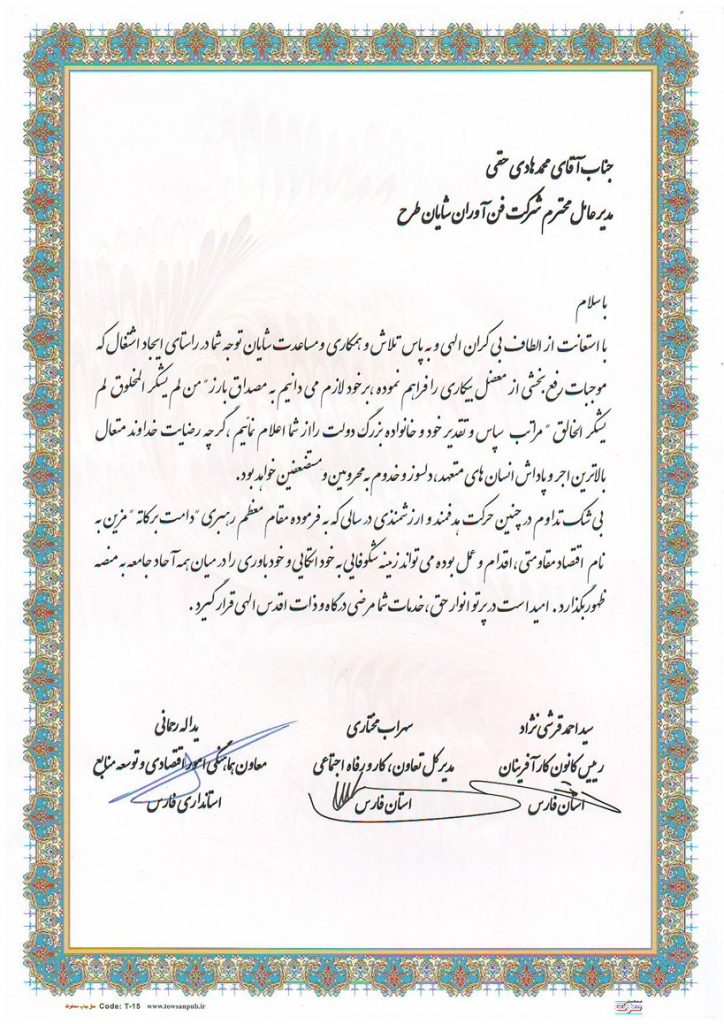 جناب آقای محمدهادی حقی
مدیرعامل محترم شرکت فن آوران شایان طرح
با سلام
با استعانت از الطاف بی کران الهی و به پاس تلاش و همکاری و مساعدت شایان توجه شما در راستای ایجاد اشتغال که
موجبات رفع بخشی از معضل بیکاری را فراهم نموده ، برخود لازم می دانیم به مصداق بارز " من لم یشکر المخلوق لم
یشکر الخالق " مراتب سپاس و تقدیر خود و خانواده بزرگ دولت را از شما اعلام نمائیم ، گرچه رضایت خداوند متعال
بالاترین اجر و پاداش انسان های متعهد، دلسوز و خدوم به محرومین و مستضعفین خواهد بود.
بی شک تداوم در چنین حرکت هدفمند و ارزشمندی در سالی که به فرموده مقام معظم رهبری "دامت برکاته" مزین به
نام اقتصاد مقاومتی، اقدام و عمل بوده می تواند زمینه شکوفایی به خود اتکایی و خودباوری را در میان همه آحاد جامعه به منصه
ظهور بگذارد . امید است در پرتو انوار حق، خدمات شما مرضی درگاه و ذات اقدس الهی قرار گیرد .
سید احمد قرشی نژاد
رییس کانون کارآفرینان
استان فارس
سهراب مختاری
مدیرکل تعاون، کار و رفاه اجتماعی
استان فارس
یداله رحمانی
معاون هماهنگی امور اقتصادی و توسعه منابع
استانداری فارس
حق چاپ محفوظ Code: T-15 www.towsanpub.ir